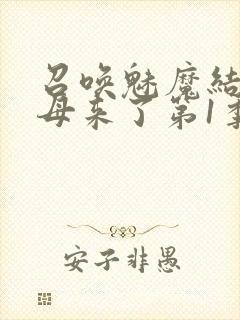 召唤魅魔结
母来了第1季
安子非愚